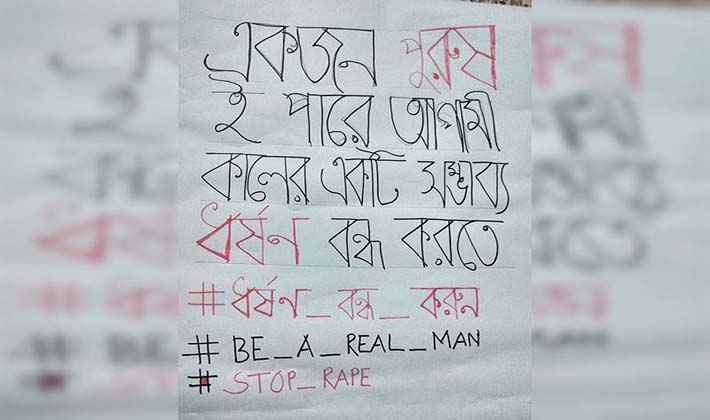 একজন পুরুষ
ই পারে আগামী
কালের একটি সম্ভাব্য
ধর্ষন বন্ধ করতে
#ধর্ষন_বন্ধ_করুন
#BE_A_REAL_MAN
#STOP_RAPE